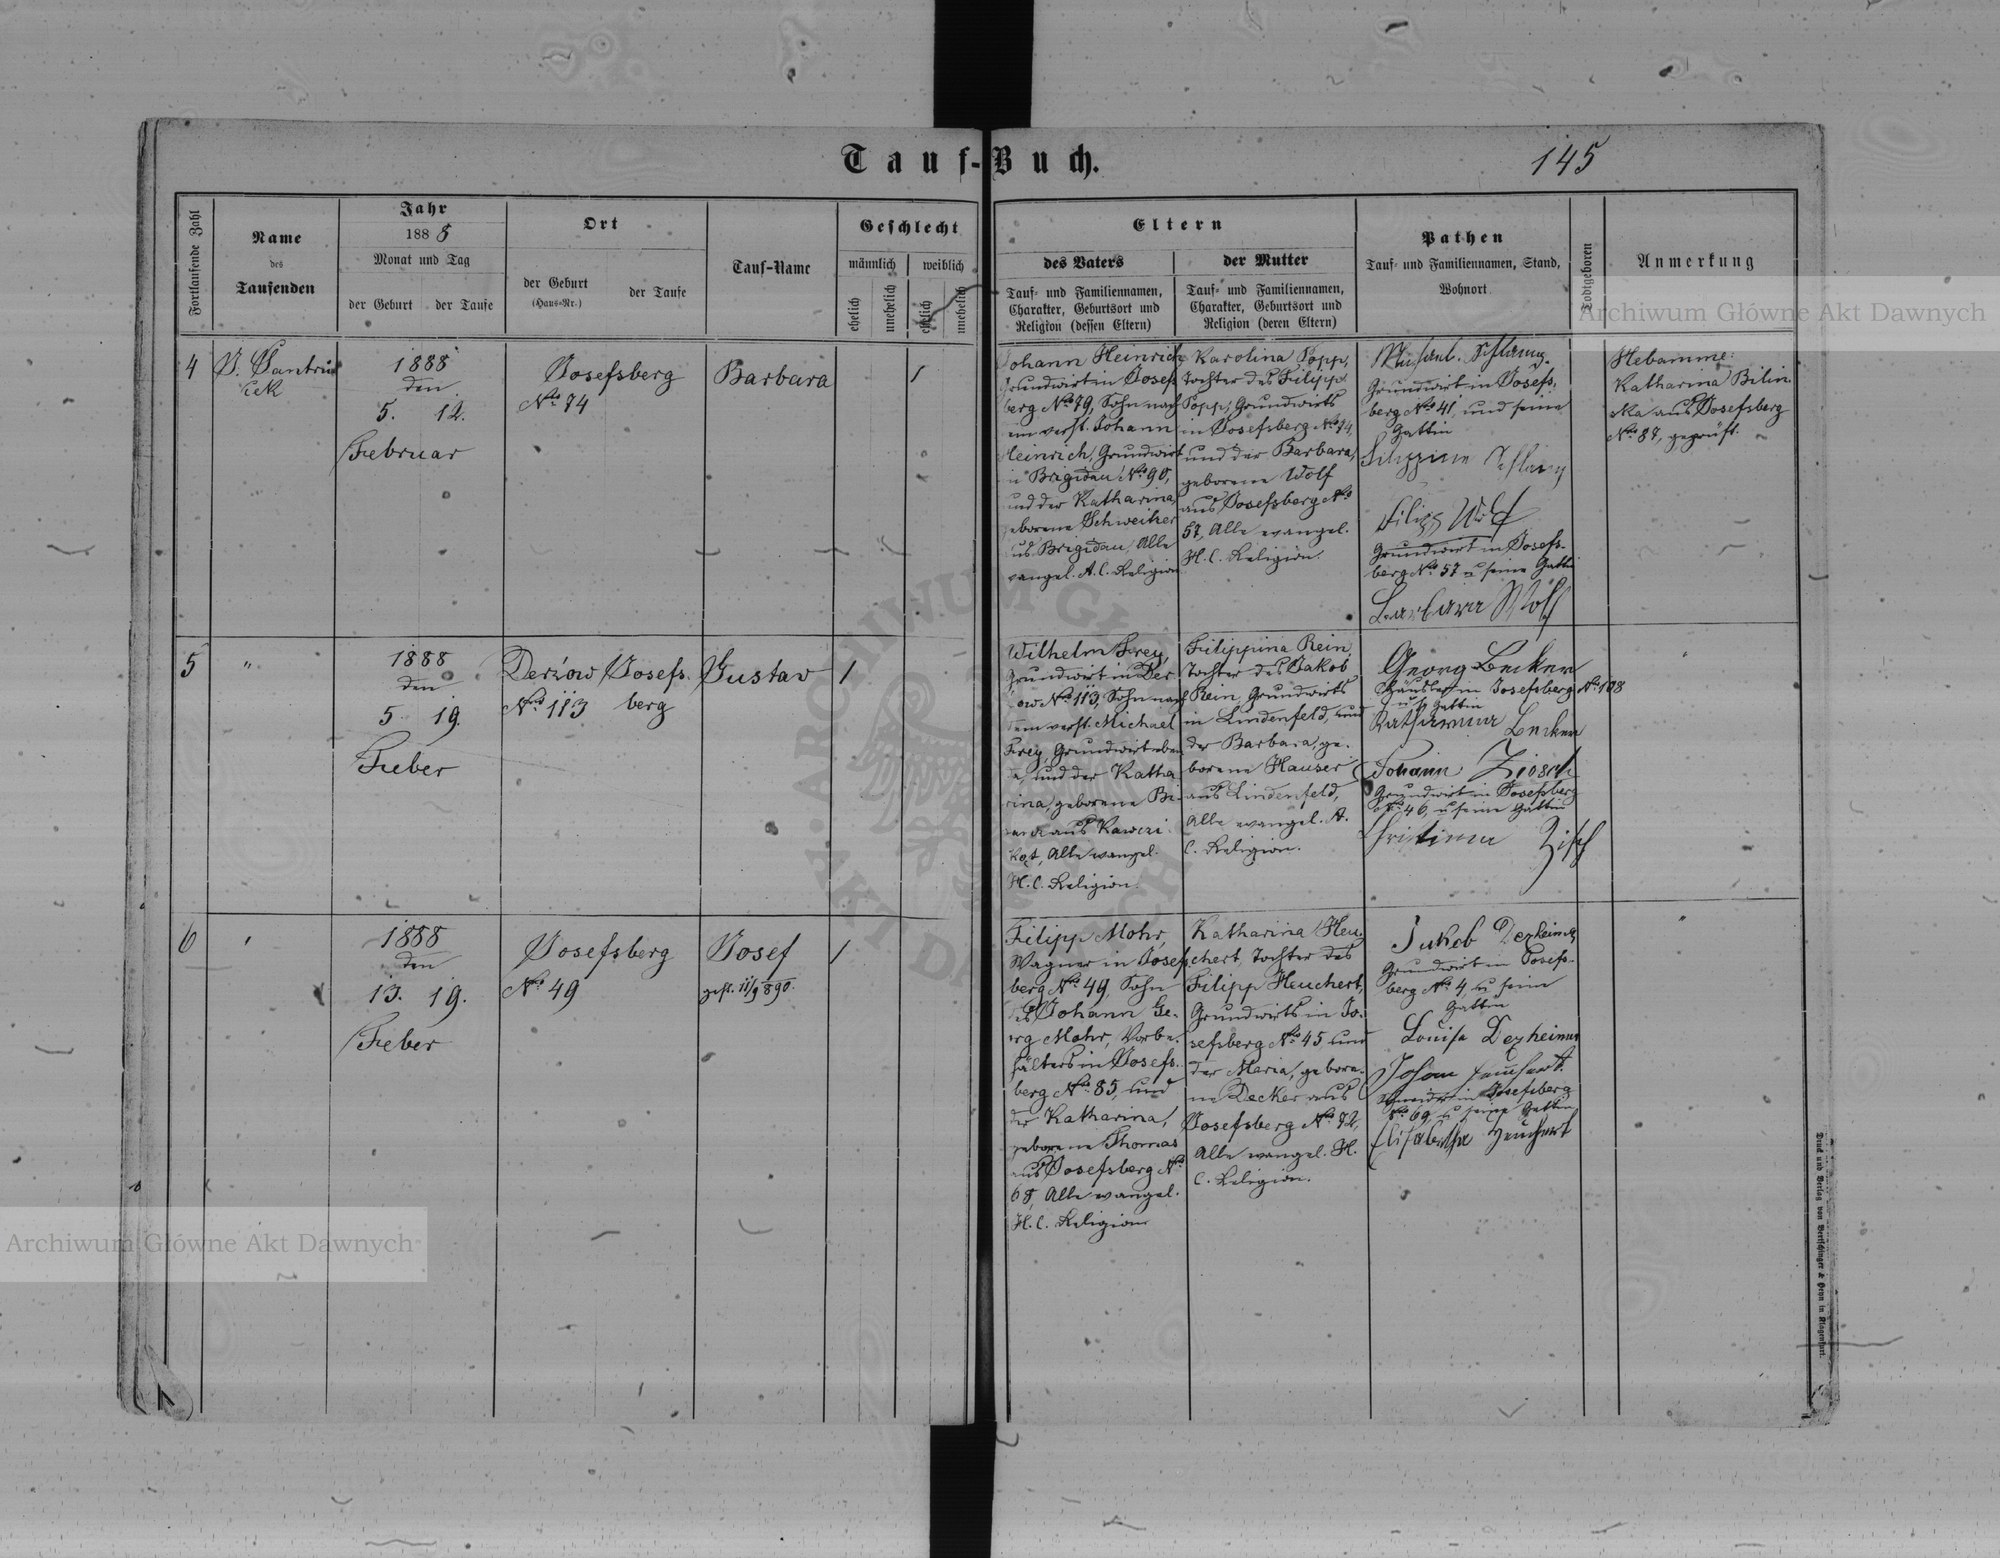 Tauf-Buch.
145
Fortlaufende Zahl
Name
des
Taufenden
Jahr
1888
Monat und Tag
der Geburt
der Taufe
Ort
der Geburt
(Haus-Nr.)
der Taufe
Tauf-Name
Geschlecht
männlich
weiblich
ehelich
unehelich
ehelich
unehelich
Eltern
des Vaters
Tauf- und Familiennamen,
Charakter, Geburtsort und
Religion (dessen Eltern)
der Mutter
Tauf- und Familiennamen,
Charakter, Geburtsort und
Religion (deren Eltern)
Pathen
Tauf- und Familiennamen, Stand,
Wohnort
Todtgeboren
Anmerkung
4
1888
den
5. 12.
Februar
Josefsberg
No 74
Barbara
1
Johann Heinrich
Grundwirt in Josefs
berg No 79, Sohn nach
dem verst. Johann
Heinrich, Grundwirt
in Brigidau No 90,
und der Katharina,
geborene Schweitzer
aus Brigidau, Alle
evangel. A. C. Religion
Karolina Popp,
Tochter des Filipp
Popp, Grundwirts
in Josefsberg No 74,
und der Barbara,
geborene Wolf
aus Josefsberg No
57, Alle evangel.
H. C. Religion.
Grundwirt in Josefs-
berg No 41, und seine
Gattin
Filippine
Filipp Wolf
Grundwirt in Josefs-
berg No 57 u seine Gattin
Barbara Wolf
Hebamme:
Katharina Bilin
ska aus Josefsberg
No 87, geprüft.
5
"
1888
den
5. 19.
Feber
Derzow
No 113
Josefs-
berg
Gustav
1
Wilhelm Frey,
Grundwirt in Der
zow No 113, Sohn nach
dem verst. Michael
Frey, Grundwirt eben
da, und der Katha
rina, geborene
aus
Alle evangel.
H. C. Religion.
Filippina Rein,
Tochter des Jakob
Rein, Grundwirts
in Lindenfeld, und
der Barbara, ge-
borene Hauser
aus Lindenfeld,
Alle evangel. A.
C. Religion.
Georg Becker
Häusler in Josefsberg No 108
u s Gattin
Katharina Becker
Johann
Grundwirt in Josefsberg
No 46, u seine Gattin
Kristina
"
6
"
1888
den
13. 19.
Feber
Josefsberg
No 49
Josef
gest. 11/9 890.
1
Filipp Mohr,
Wagner in Josefs
berg No 49, Sohn
des Johann Ge-
org Mohr, Vorbe-
hälters in Josefs-
berg No 85, und
der Katharina,
geborene Thomas
aus Josefsberg No
68, Alle evangel.
H. C. Religion
Katharina Heu-
chert, Tochter des
Filipp Heuchert,
Grundwirts in Jo-
sefsberg No 45 und
der Maria, gebore-
ne Decker aus
Josefsberg No 72,
Alle evangel. H.
C. Religion.
Jakob Dexheimer
Grundwirt in Josefs-
berg No 4, u seine
Gattin
Louise Dexheimer
Johann Heuchert
in Josefsberg
No 69, u seine Gattin
Elisabetha Heuchert
"
Druck und Verlag von Bertschinger & Heyn in Klagenfurt.
Archiwum Główne Akt Dawnych
Archiwum Główne Akt Dawnych